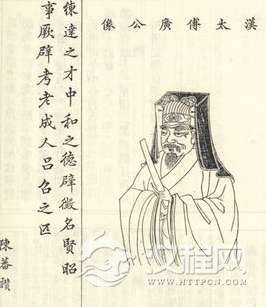 漢太傅廣公像
練達之才中和之德辟徵名賢昭
事厥辟考老成人吕召之匹
陳蕃讃
汉程网